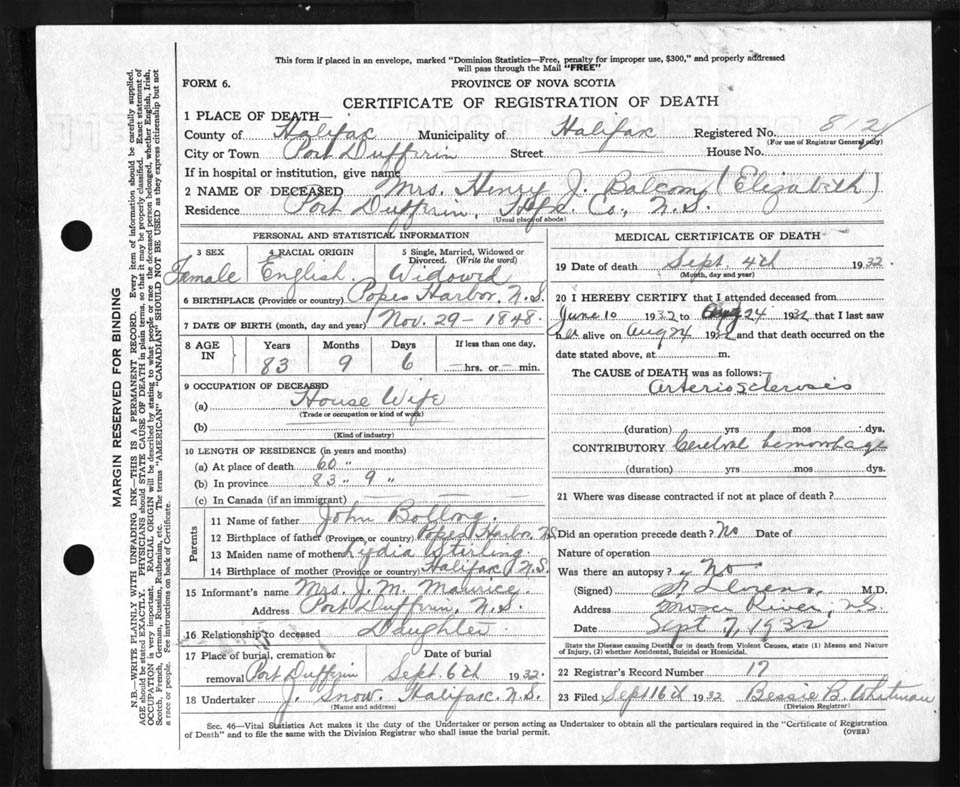 This form if placed in an envelope, marked "Dominion Statistics—Free, penalty for improper use, $300," and properly addressed
will pass through the Mail "FREE"
FORM 6.
PROVINCE OF NOVA SCOTIA
CERTIFICATE OF REGISTRATION OF DEATH
1 PLACE OF DEATH—
County of Halifax Municipality of Halifax Registered No. 812
(For use of Registrar General only)
City or Town Port Dufferin Street House No.
If in hospital or institution, give name
2 NAME OF DECEASED Mrs. Henry J. Balcom (Elizabeth)
Residence Port Dufferin, Hfx. Co., N.S.
(Usual place of abode)
PERSONAL AND STATISTICAL INFORMATION
3 SEX 4 RACIAL ORIGIN 5 Single, Married, Widowed or
Divorced. (Write the word)
Female English. Widowed
6 BIRTHPLACE (Province or country) Popes Harbor, N.S.
7 DATE OF BIRTH (month, day and year) Nov. 29 - 1848.
8 AGE IN Years Months Days If less than one day,
83 9 6 —hrs. or— min.
9 OCCUPATION OF DECEASED
(a) House Wife
(Trade or occupation or kind of work)
(b)
(Kind of industry)
10 LENGTH OF RESIDENCE (in years and months)
(a) At place of death 60 "
(b) In province 83 " 9 "
(c) In Canada (if an immigrant)
Parents
11 Name of father John Bollong.
12 Birthplace of father (Province or country) Popes Harbor, N.S.
13 Maiden name of mother Lydia Stirling.
14 Birthplace of mother (Province or country) Halifax N.S.
15 Informant's name Mrs. J. M.
Address Port Dufferin, N.S.
16 Relationship to deceased Daughter.
17 Place of burial, cremation or removal Date of burial
Port Dufferin Sept. 6th 1932.
18 Undertaker J. Snow. Halifax. N.S.
(Name and address)
MEDICAL CERTIFICATE OF DEATH
19 Date of death Sept 4th 1932
(Month, day and year)
20 I HEREBY CERTIFY that I attended deceased from
June 10 1932 to Aug 24 1932 that I last saw
her alive on Aug 24 1932 and that death occurred on the
date stated above, at m.
The CAUSE of DEATH was as follows:—
Arterio sclerosis
(duration) yrs mos dys.
CONTRIBUTORY Cerebral hemorrhage
(duration) yrs mos dys.
21 Where was disease contracted if not at place of death?
Did an operation precede death? No Date of
Nature of operation
Was there an autopsy? No
(Signed) M.D.
Address Moser River, N.S.
Date Sept 7, 1932
State the Disease causing Death or in death from Violent Causes, state (1) Means and Nature
of Injury, (2) whether Accidental, Suicidal or Homicidal.
22 Registrar's Record Number 17
23 Filed Sept 16th 1932 Bessie B. Whitman
(Division Registrar)
Sec. 46—Vital Statistics Act makes it the duty of the Undertaker or person acting as Undertaker to obtain all the particulars required in the "Certificate of Registration
of Death" and to file the same with the Division Registrar who shall issue the burial permit.
(OVER)
MARGIN RESERVED FOR BINDING
N.B.—WRITE PLAINLY WITH UNFADING INK—THIS IS A PERMANENT RECORD. Every item of information should be carefully supplied.
AGE should be stated EXACTLY. PHYSICIANS should STATE CAUSE OF DEATH in plain terms, so that it may be properly classified. Exact statement of
OCCUPATION is very important. RACIAL ORIGIN will be described by stating to what people or race the deceased person belonged, whether English, Irish,
Scotch, French, German, Russian, Ruthenian, etc. The terms "AMERICAN" or "CANADIAN" SHOULD NOT BE USED as they express citizenship but not
a race or people. See instructions on back of Certificate.